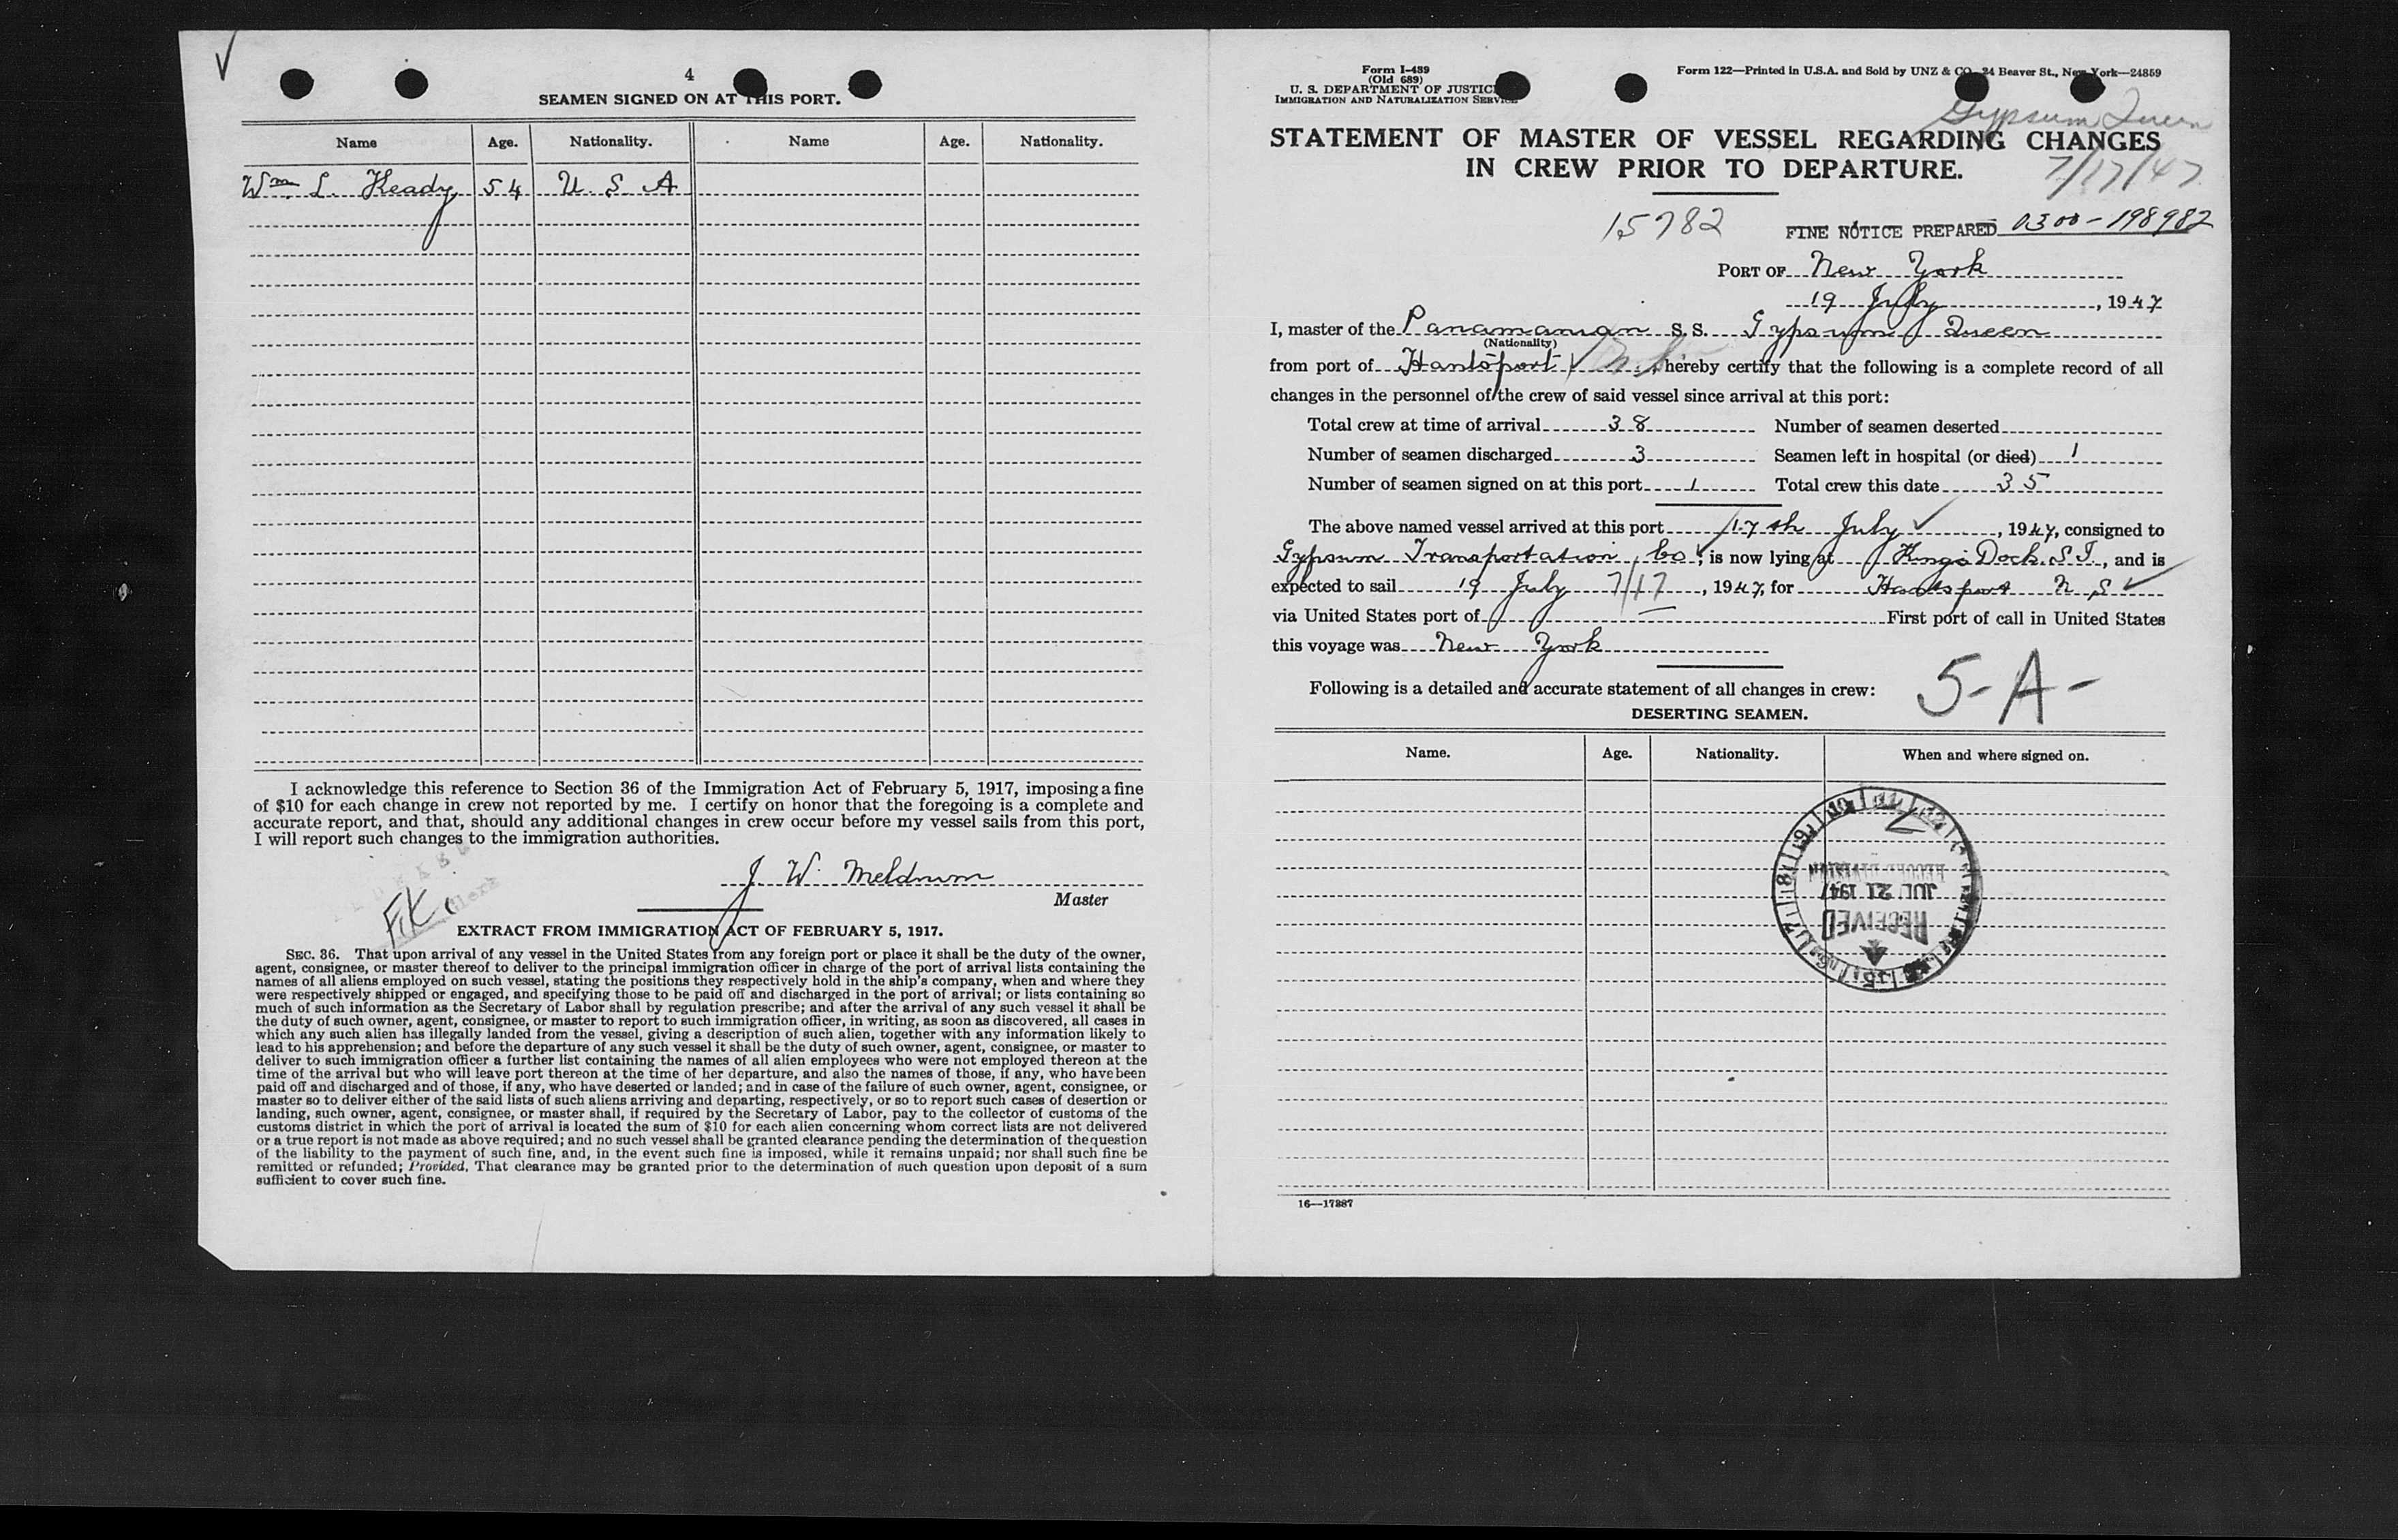 4
SEAMEN SIGNED ON AT THIS PORT.
Name Age. Nationality. Name Age. Nationality.
Wm. L. Keady 54 U. S. A
I acknowledge this reference to Section 36 of the Immigration Act of February 5, 1917, imposing a fine
of $10 for each change in crew not reported by me. I certify on honor that the foregoing is a complete and
accurate report, and that, should any additional changes in crew occur before my vessel sails from this port,
I will report such changes to the immigration authorities.
J. W. Meldrum
Master
Clerk
EXTRACT FROM IMMIGRATION ACT OF FEBRUARY 5, 1917.
SEC. 36. That upon arrival of any vessel in the United States from any foreign port or place it shall be the duty of the owner,
agent, consignee, or master thereof to deliver to the principal immigration officer in charge of the port of arrival lists containing the
names of all aliens employed on such vessel, stating the positions they respectively hold in the ship's company, when and where they
were respectively shipped or engaged, and specifying those to be paid off and discharged in the port of arrival; or lists containing so
much of such information as the Secretary of Labor shall by regulation prescribe; and after the arrival of any such vessel it shall be
the duty of such owner, agent, consignee, or master to report to such immigration officer, in writing, as soon as discovered, all cases in
which any such alien has illegally landed from the vessel, giving a description of such alien, together with any information likely to
lead to his apprehension; and before the departure of any such vessel it shall be the duty of such owner, agent, consignee, or master to
deliver to such immigration officer a further list containing the names of all alien employees who were not employed thereon at the
time of the arrival but who will leave port thereon at the time of her departure, and also the names of those, if any, who have been
paid off and discharged and of those, if any, who have deserted or landed; and in case of the failure of such owner, agent, consignee, or
master so to deliver either of the said lists of such aliens arriving and departing, respectively, or so to report such cases of desertion or
landing, such owner, agent, consignee, or master shall, if required by the Secretary of Labor, pay to the collector of customs of the
customs district in which the port of arrival is located the sum of $10 for each alien concerning whom correct lists are not delivered
or a true report is not made as above required; and no such vessel shall be granted clearance pending the determination of the question
of the liability to the payment of such fine, and, in the event such fine is imposed, while it remains unpaid; nor shall such fine be
remitted or refunded; Provided, That clearance may be granted prior to the determination of such question upon deposit of a sum
sufficient to cover such fine.
Form I-489
(Old 689)
U. S. DEPARTMENT OF JUSTICE
IMMIGRATION AND NATURALIZATION SERVICE
Form 122—Printed in U.S.A. and Sold by UNZ & CO., 24 Beaver St., New York—24859
Gypsum Queen
STATEMENT OF MASTER OF VESSEL REGARDING CHANGES
IN CREW PRIOR TO DEPARTURE.
7/17/47
15782
FINE NOTICE PREPARED 0300-198982
PORT OF New York
19 July, 1947
I, master of the Panamanian S. S. Gypsum Queen
(Nationality)
from port of Hantsport, hereby certify that the following is a complete record of all
changes in the personnel of the crew of said vessel since arrival at this port:
Total crew at time of arrival 38 Number of seamen deserted
Number of seamen discharged 3 Seamen left in hospital (or died) 1
Number of seamen signed on at this port 1 Total crew this date 35
The above named vessel arrived at this port 17th July, 1947, consigned to
Gypsum Transportation Co, is now lying at Kings Dock. S. I., and is
expected to sail 19 July 7/17, 1947, for Hantsport N. S
via United States port of First port of call in United States
this voyage was New York
Following is a detailed and accurate statement of all changes in crew:
5-A-
DESERTING SEAMEN.
Name. Age. Nationality. When and where signed on.
RECEIVED
JUL 21 1947
RECORD DIVISION
16—17887